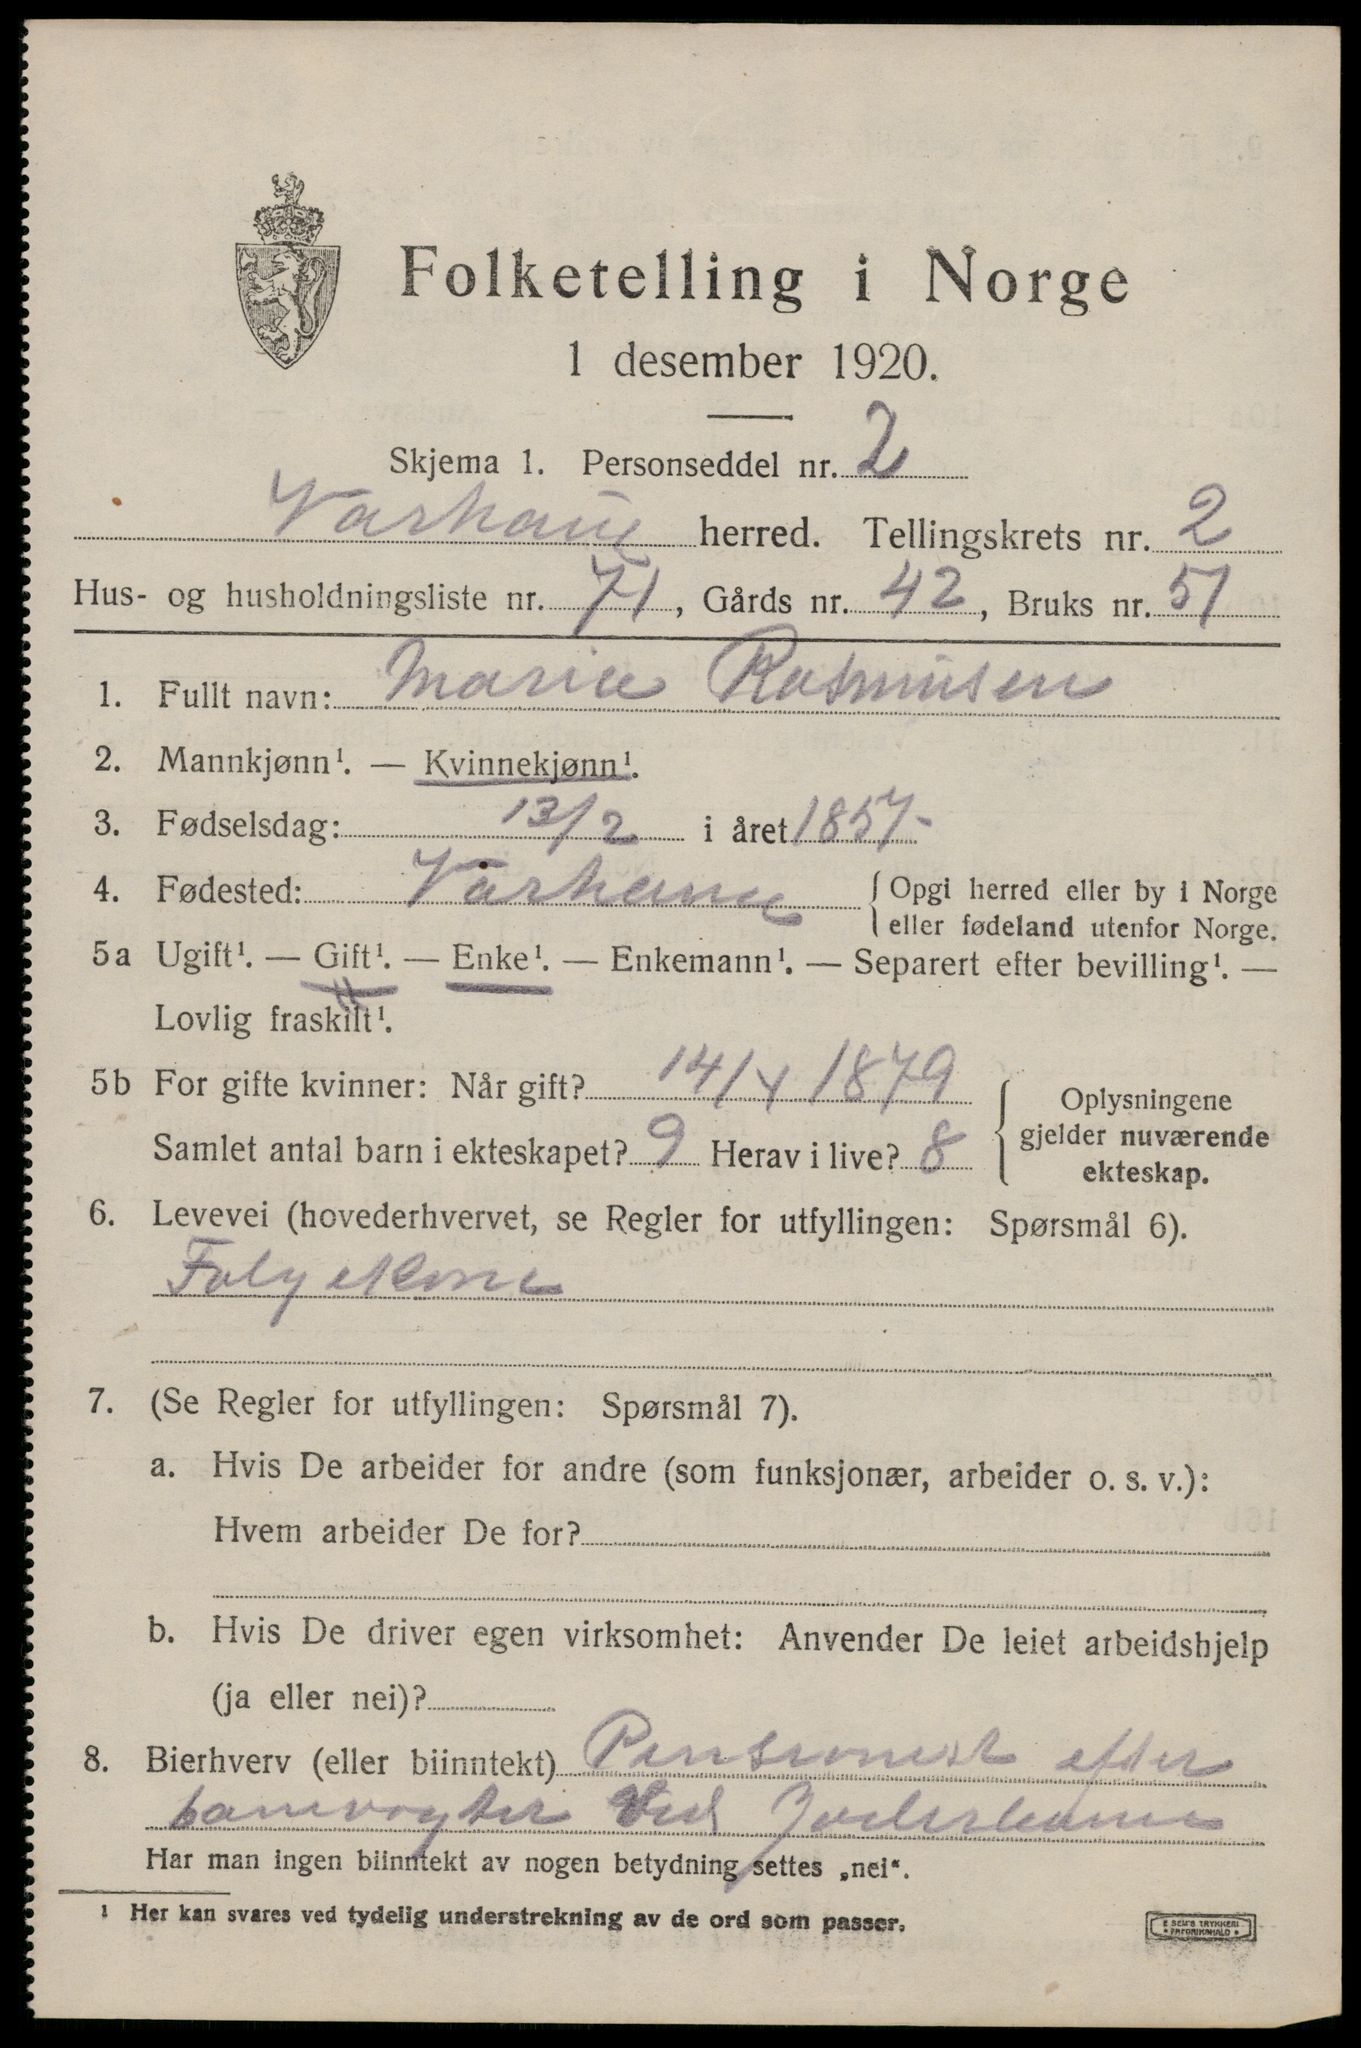 Folketelling i Norge
1 desember 1920.
Skjema 1. Personseddel nr. 2
Varhaug herred. Tellingskrets nr. 2
Hus- og husholdningsliste nr. 71, Gårds nr. 42, Bruks nr. 51
1. Fullt navn: Marie Rasmusen
2. Mannkjønn¹. — Kvinnekjønn¹.
3. Fødselsdag: 13/2 i året 1857-
4. Fødested: Varhaug { Opgi herred eller by i Norge
eller fødeland utenfor Norge.
5a Ugift¹. — Gift¹. — Enke¹. — Enkemann¹. — Separert efter bevilling¹. —
Lovlig fraskilt¹.
5b For gifte kvinner: Når gift? 14/4 1879
Samlet antal barn i ekteskapet? 9 Herav i live? 8
Oplysningene
gjelder nuværende
ekteskap.
6. Levevei (hovederhvervet, se Regler for utfyllingen: Spørsmål 6).
7. (Se Regler for utfyllingen: Spørsmål 7).
a. Hvis De arbeider for andre (som funksjonær, arbeider o. s. v.):
Hvem arbeider De for?
b. Hvis De driver egen virksomhet: Anvender De leiet arbeidshjelp
(ja eller nei)?
8. Bierhverv (eller biinntekt) Pensionist efter
banevogter ved Jæderbanen
Har man ingen biinntekt av nogen betydning settes „nei“.
¹ Her kan svares ved tydelig understrekning av de ord som passer.
E SEM'S TRYKKERI
* FREDRIKSHALD *